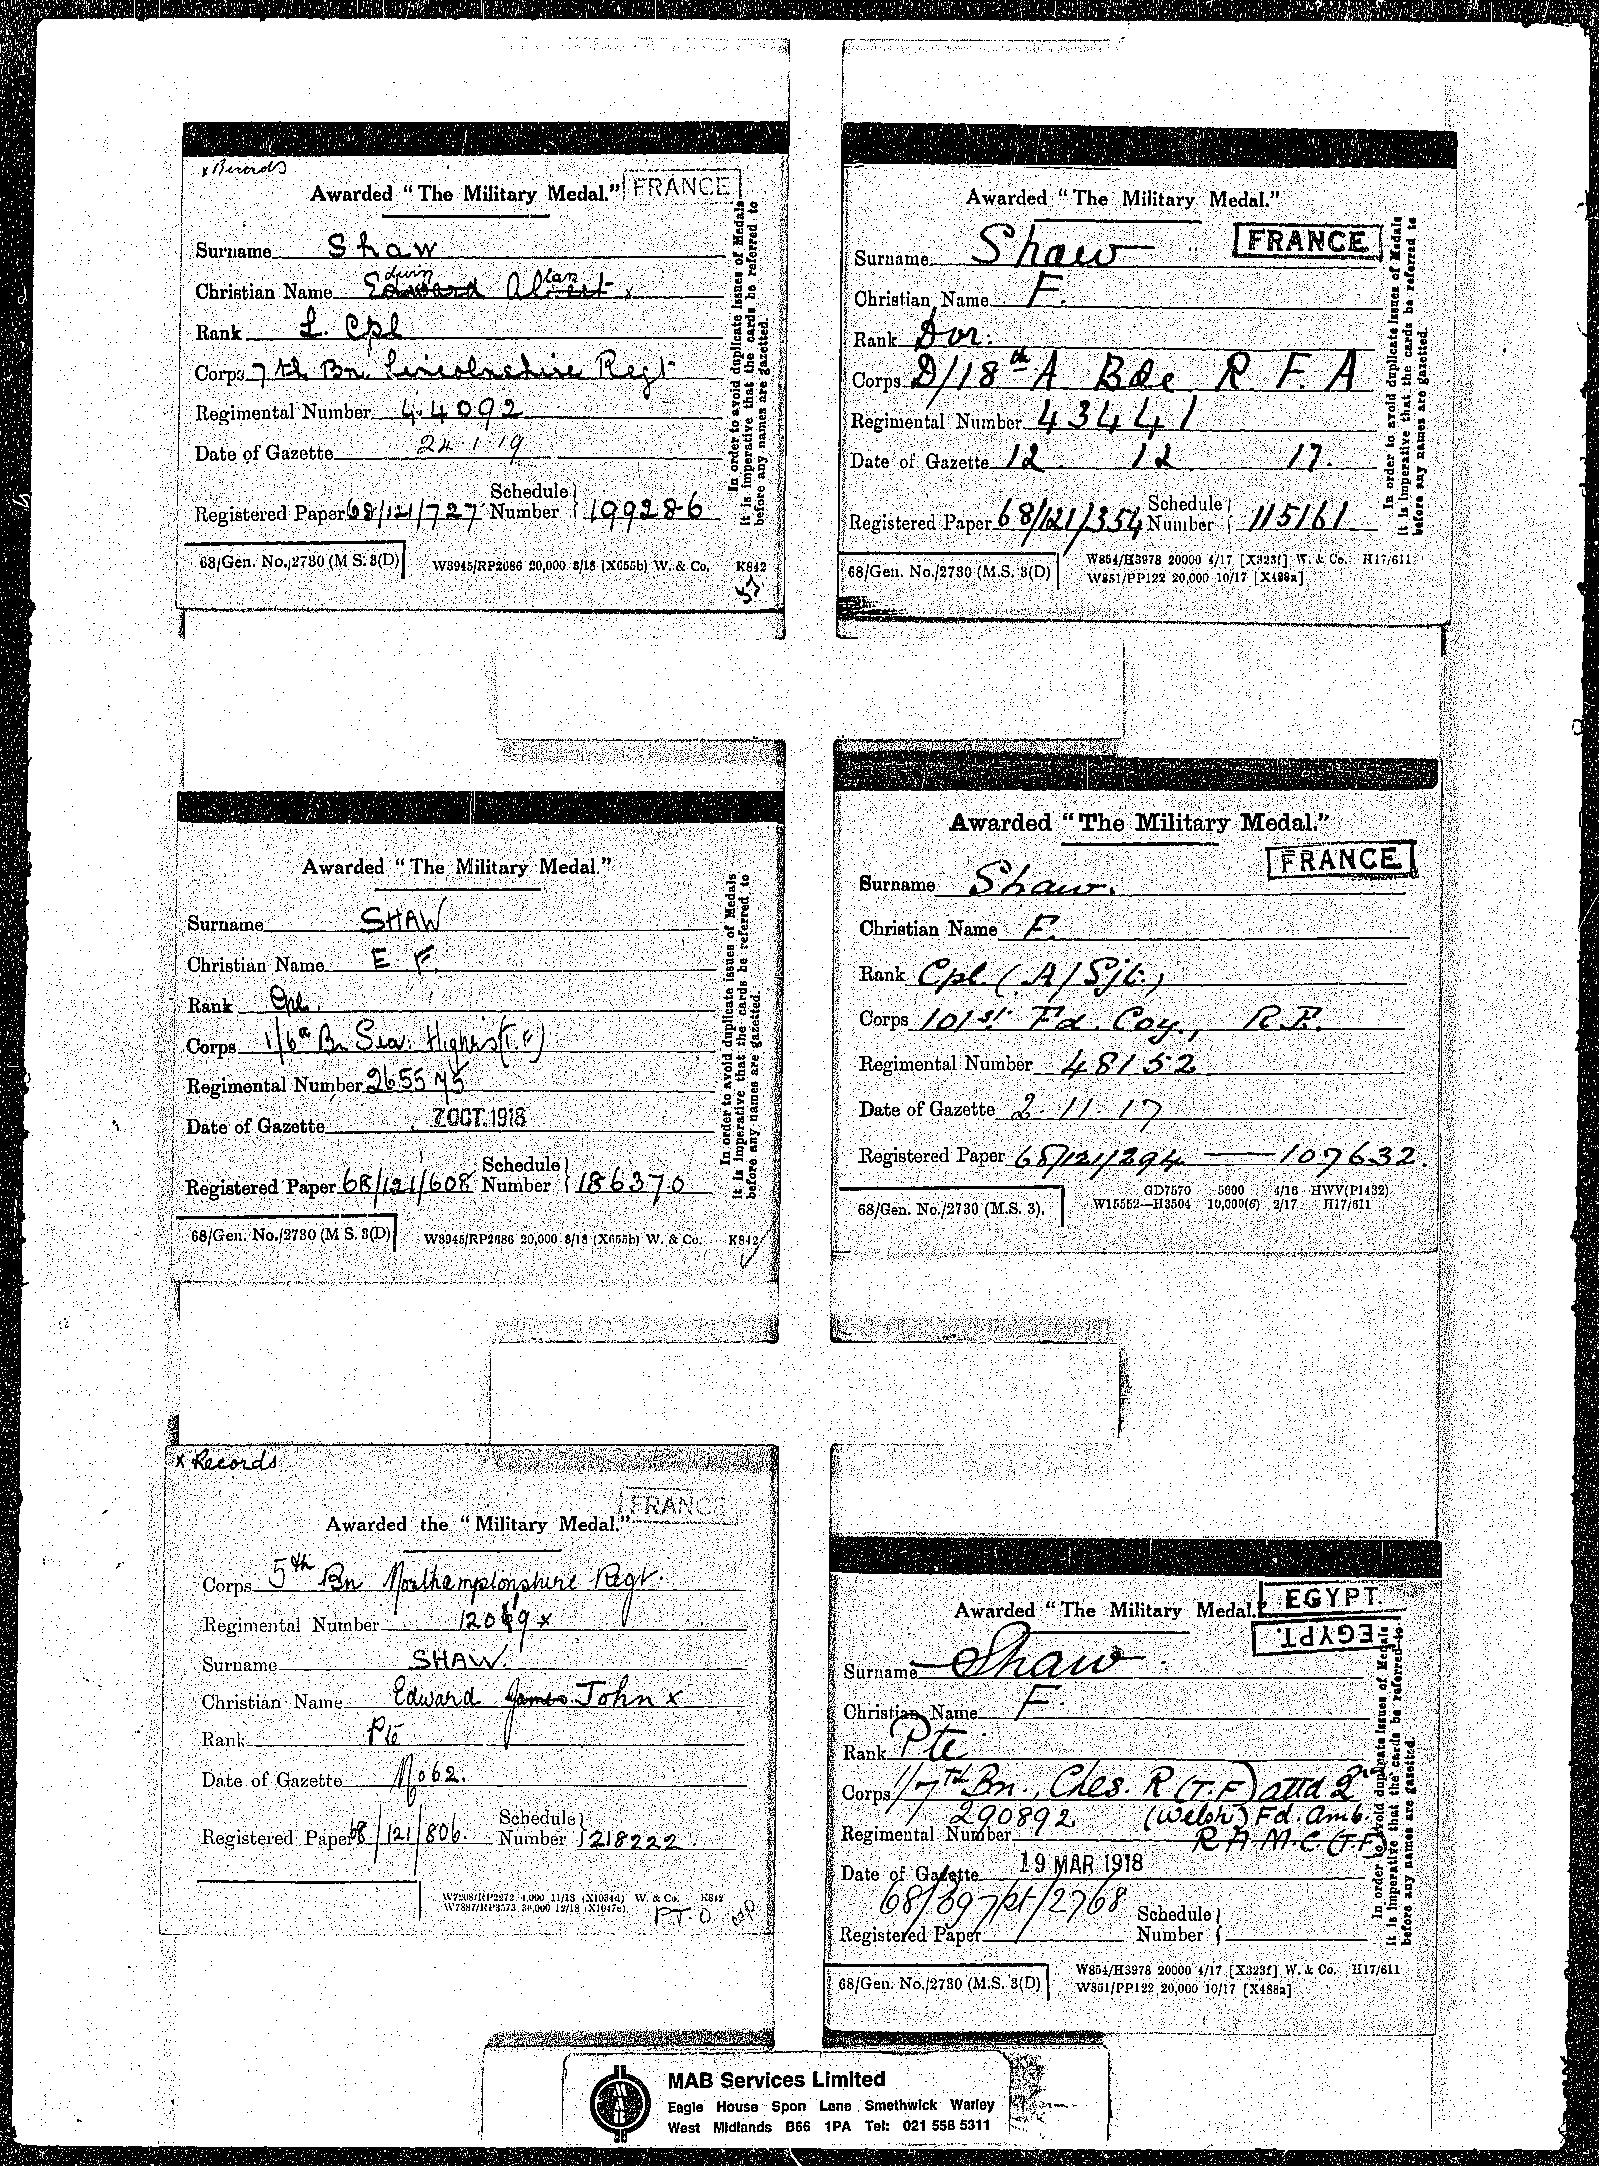 x Records
Awarded "The Military Medal." FRANCE
Surname Shaw
Christian Name Edward Albert x
dwin lan
Rank L. Cpl
Corps 7th Bn. Lincolnshire Regt
Regimental Number 44092
Date of Gazette 24 1 19
Registered Paper 68/121/727 Schedule Number 199286
68/Gen. No./2730 (M S. 3(D) W3945/RP2686 20,000 8/18 (X655b) W. & Co. K842
In order to avoid duplicate issues of Medals
it is imperative that the cards be referred to
before any names are gazetted.
SHAW
Awarded "The Military Medal."
Surname SHAW
Christian Name E F.
Rank Cpl.
Corps 1/6th Bn Sea. Highrs (T.F)
Regimental Number 265575
Date of Gazette 7 OCT. 1918
Registered Paper 68/121/608 Schedule Number 186370
68/Gen. No./2730 (M S. 3(D) W3945/RP2686 20,000 8/18 (X655b) W. & Co. K842
In order to avoid duplicate issues of Medals
it is imperative that the cards be referred to
before any names are gazetted.
x Records
FRANCE
Awarded the "Military Medal."
Corps 5th Bn Northamptonshire Regt.
Regimental Number x
Surname SHAW.
Christian Name Edward James John x
Rank Pte
Date of Gazette No 62.
Registered Paper 68/121/806. Schedule Number 218222.
W7208/RP2272 4,000 11/18 (X1034d) W. & Co. K842
W7887/RP3573 30,000 12/18 (X1047c)
P.T.O
Awarded "The Military Medal."
FRANCE
Surname Shaw
Christian Name F.
Rank Dvr.
Corps D/18th A Bde R F. A
Regimental Number 43441
Date of Gazette 12 12 17.
Registered Paper 68/121/354 Schedule Number 115161
68/Gen. No./2730 (M.S. 3(D) W854/H3978 20000 4/17 [X323f] W. & Co. H17/611
W851/PP122 20,000 10/17 [X488a]
In order to avoid duplicate issues of Medals
it is imperative that the cards be referred to
before any names are gazetted.
Awarded "The Military Medal."
FRANCE
Surname Shaw.
Christian Name F.
Rank Cpl. (A/Sjt.)
Corps 101st Fd. Coy., R.E.
Regimental Number 48152
Date of Gazette 2. 11. 17
Registered Paper 68/121/294 — 107632.
68/Gen. No./2730 (M.S. 3). GD7570 5000 4/16 HWV(P1432)
W15552—H3504 10,000(6) 2/17 H17/611
EGYPT.
Awarded "The Military Medal."
EGYPT.
Surname Shaw
Christian Name F.
Rank Pte
Corps 1/7th Bn., Ches. R (T.F) attd 2nd
(Welsh) Fd. Amb.
Regimental Number 290892 R.A.M.C (T.F)
Date of Gazette 19 MAR 1918
68/397pt/2768
Registered Paper Schedule Number
68/Gen. No./2730 (M.S. 3(D) W854/H3978 20000 4/17 [X323f] W. & Co. H17/611
W851/PP122 20,000 10/17 [X488a]
In order to avoid duplicate issues of Medals
it is imperative that the cards be referred to
before any names are gazetted.
MAB Services Limited
Eagle House Spon Lane Smethwick Warley
West Midlands B66 1PA Tel: 021 558 5311